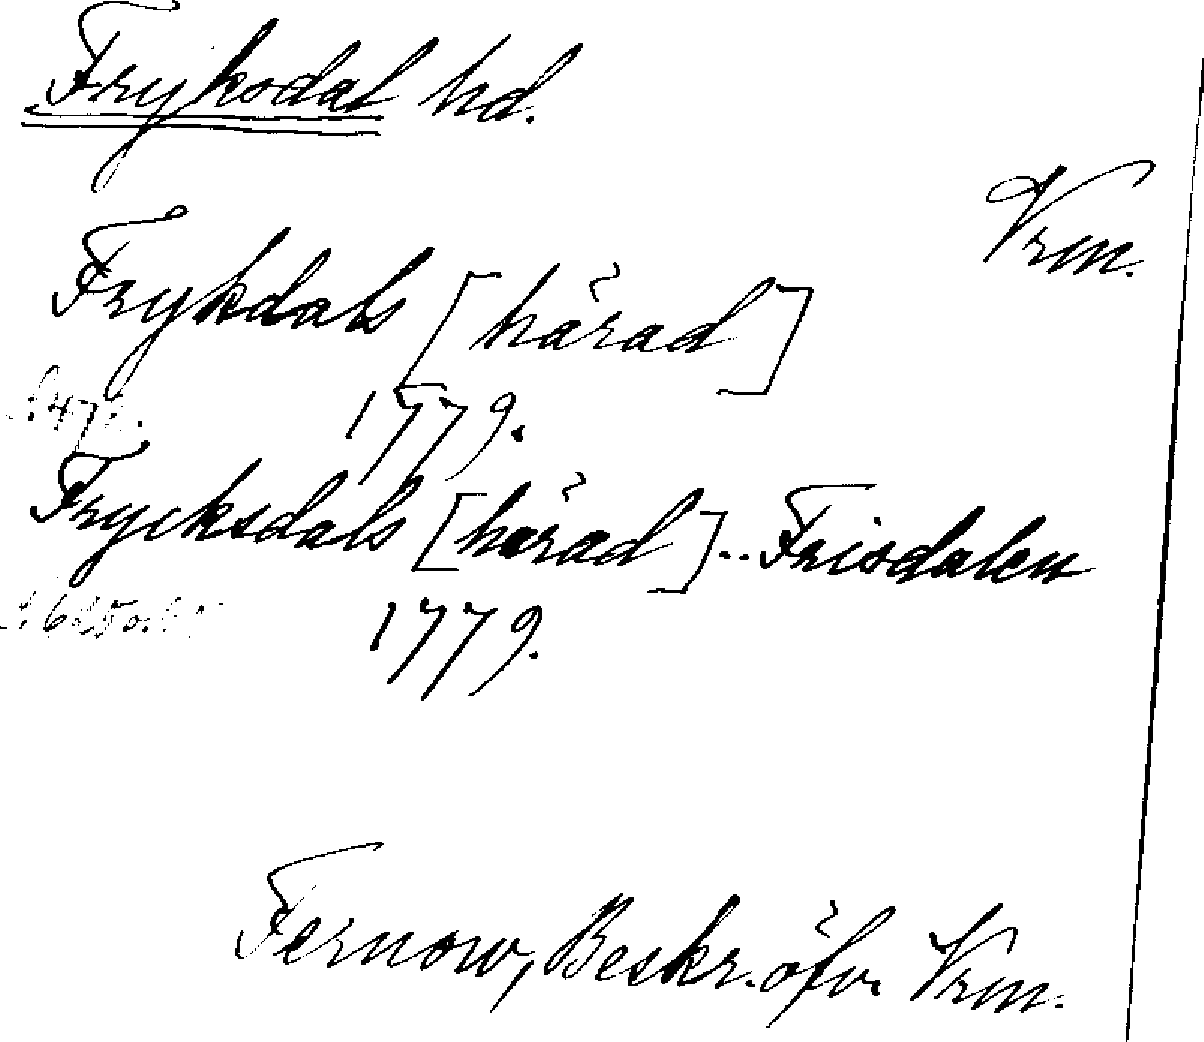 Fryksdal hd.
Vrm.
Frykdals [härad]
1779.
Frycksdals [härad]..Frisdalen
1779.
Fernow, Beskr. öfv. Vrm.